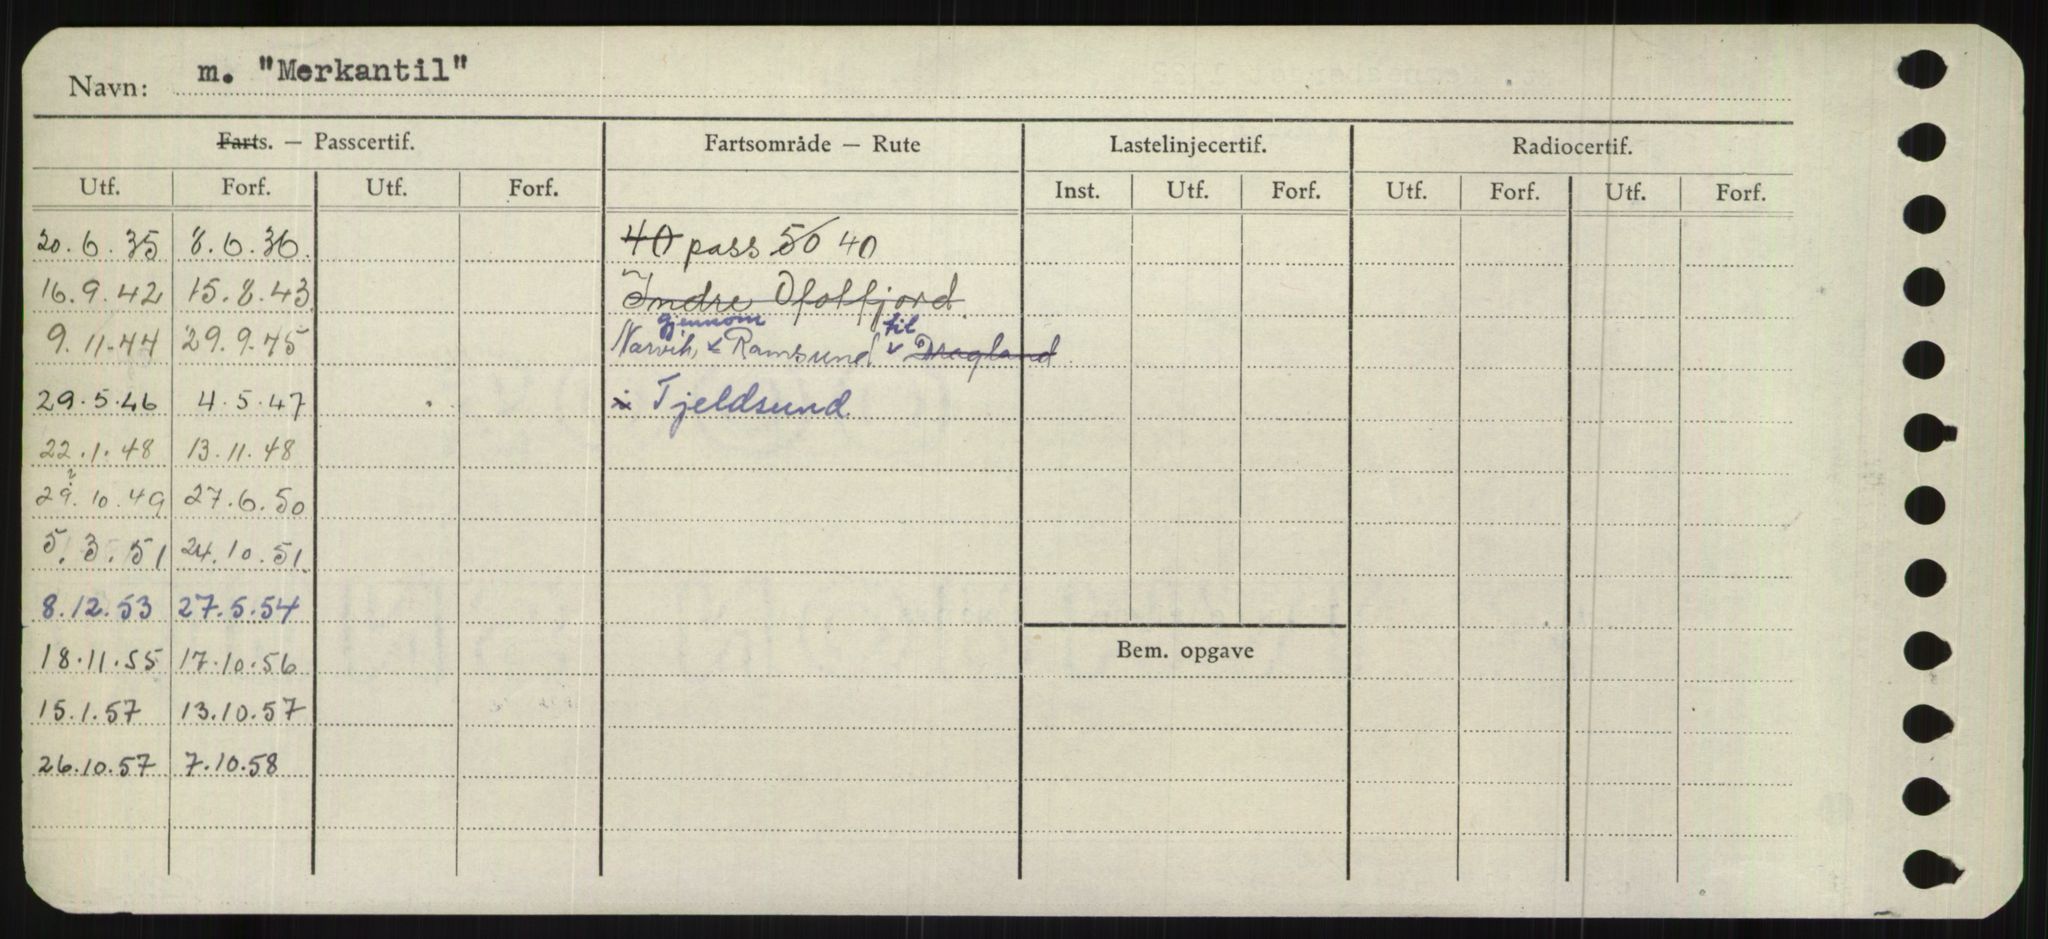 Navn: m. "Merkantil"
Farts. — Passcertif. Fartsområde — Rute Lastelinjecertif. Radiocertif.
Utf. Forf. Utf. Forf. Inst. Utf. Forf. Utf. Forf. Utf. Forf.
20.6.35 8.6.36. 40 pass 50 40
16.9.42 15.8.43 Indre Ofotfjord.
gjennom til
9.11.44 29.9.45 Narvik, Ramsund Dragland
29.5.46 4.5.47 i Tjeldsund
22.1.48 13.11.48
29.10.49 27.6.50
5.3.51 24.10.51.
8.12.53 27.5.54
18.11.55 17.10.56 Bem. opgave
15.1.57 13.10.57
26.10.57 7.10.58